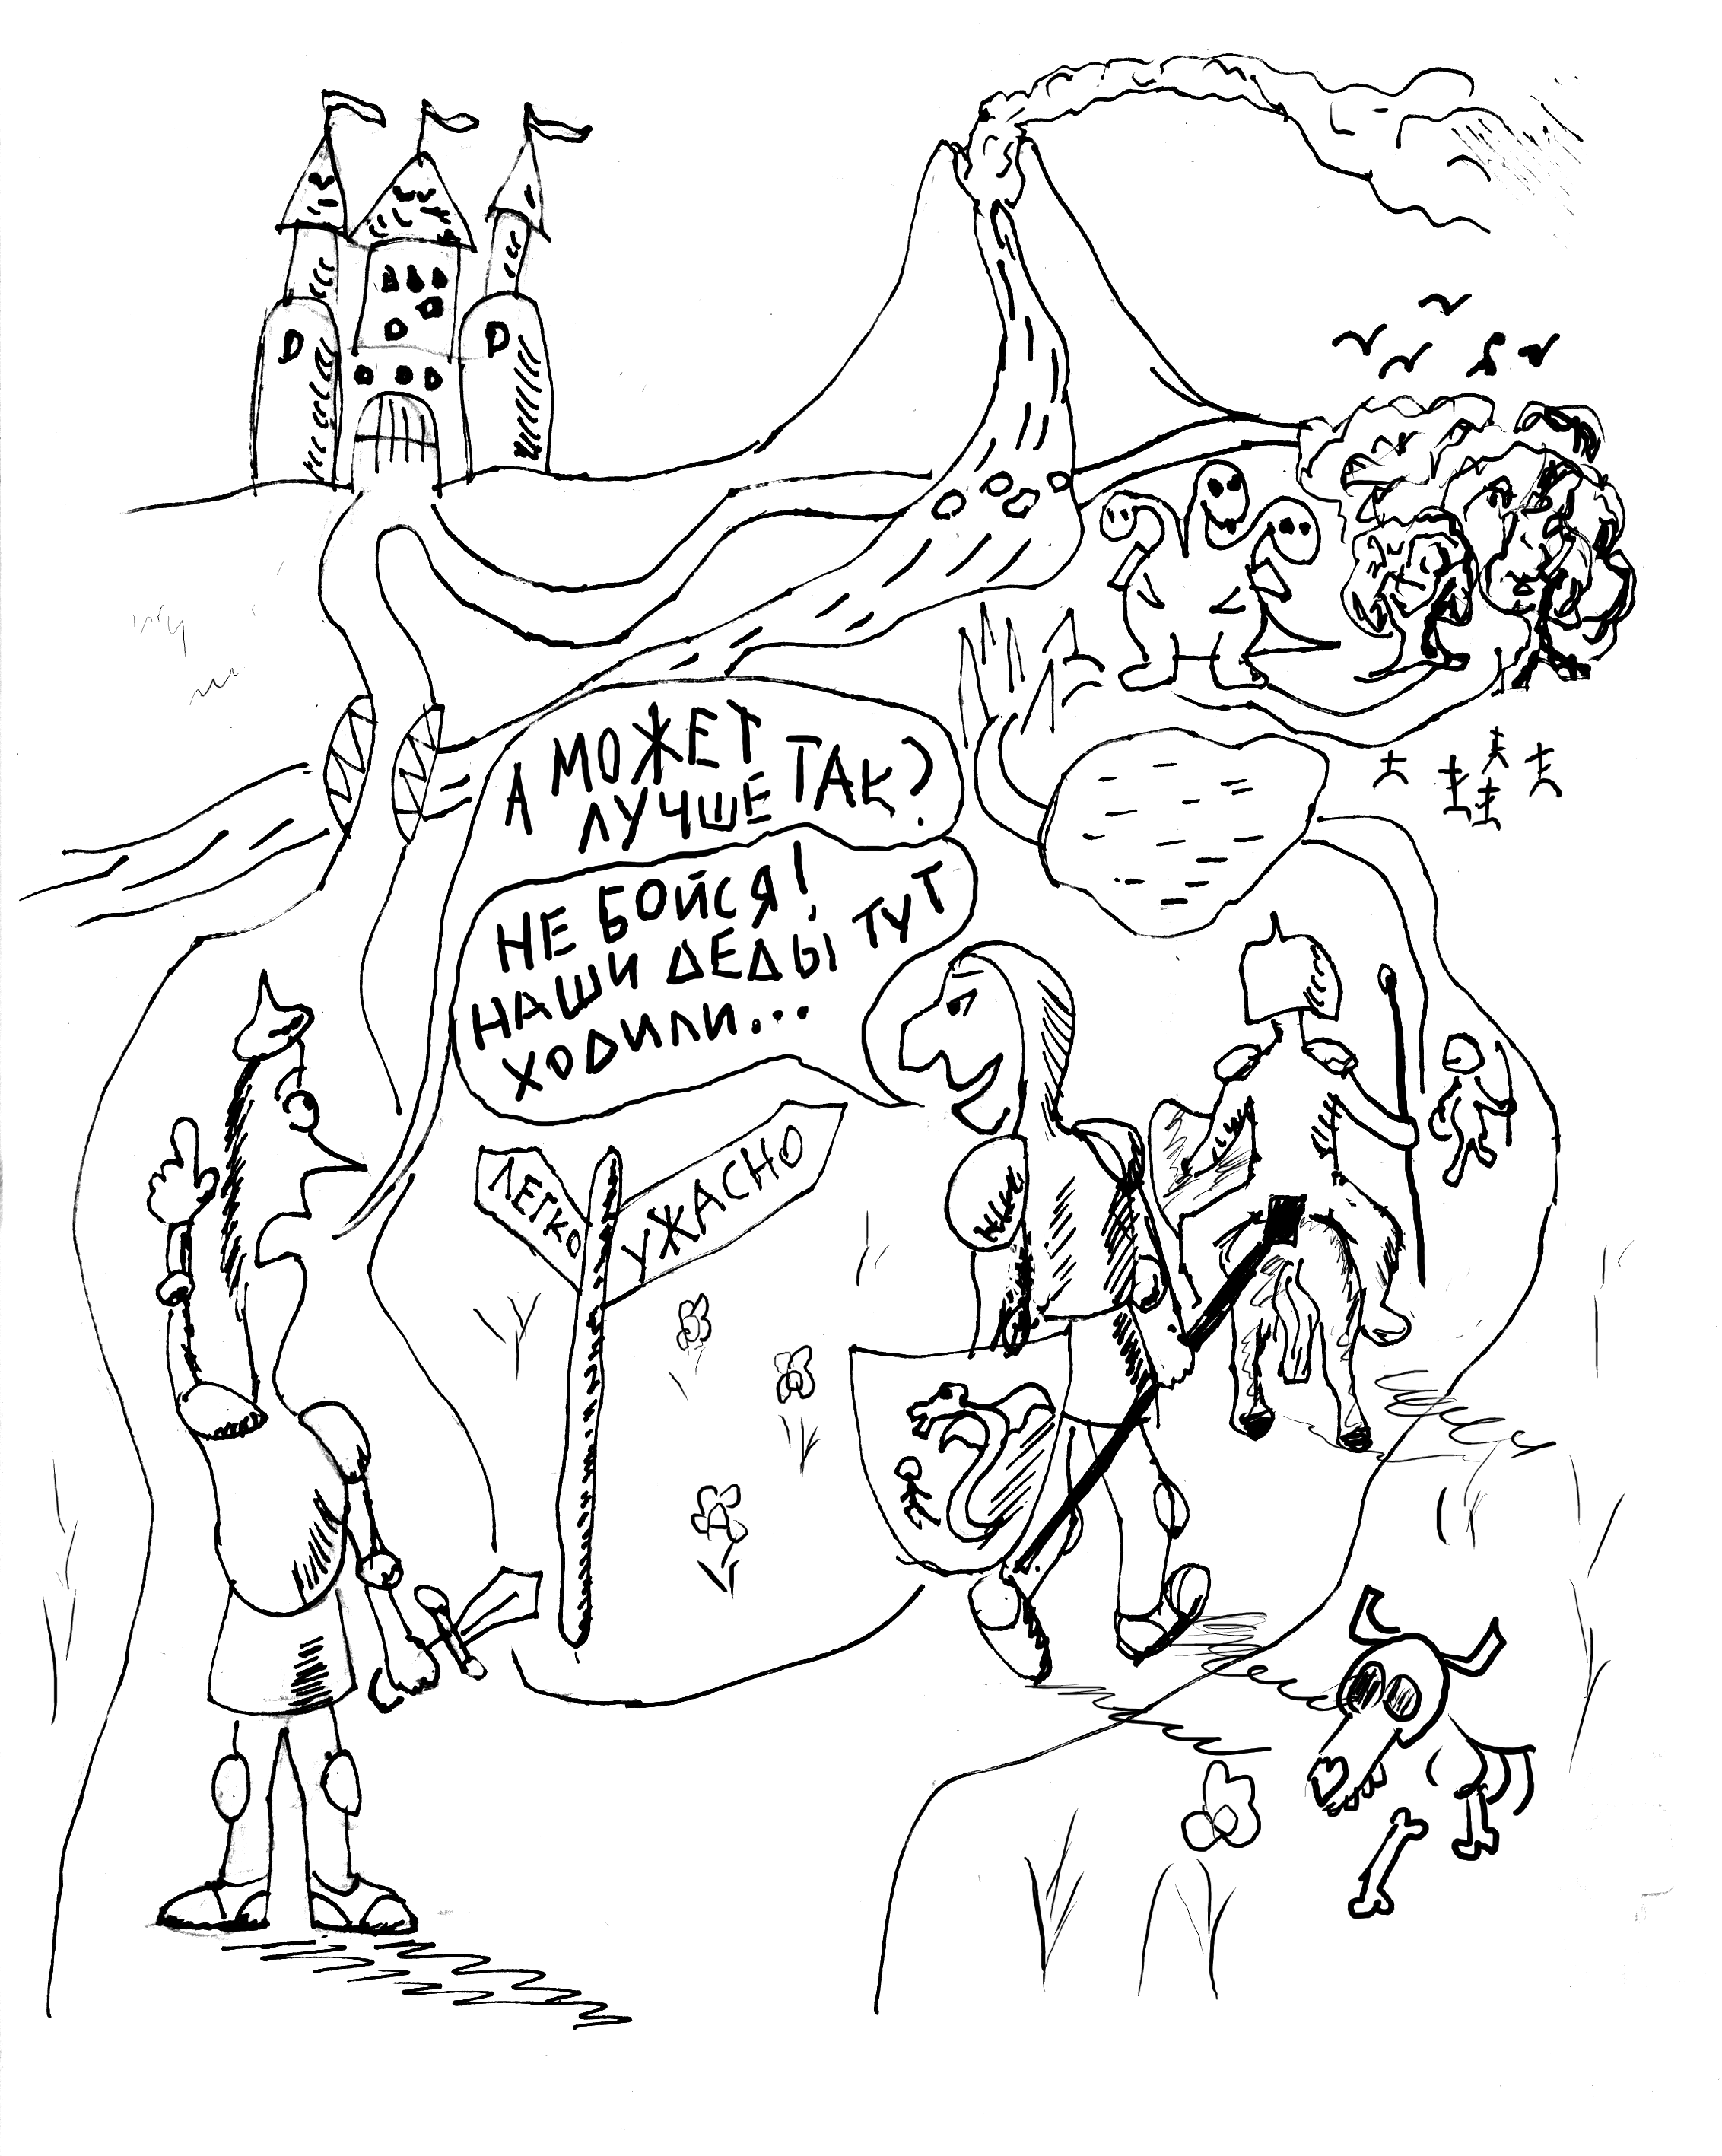 А МОЖЕТ
ЛУЧШЕ ТАК?
НЕ БОЙСЯ!
НАШИ ДЕДЫ ТУТ
ХОДИЛИ...
ЛЕГКО
УЖАСНО